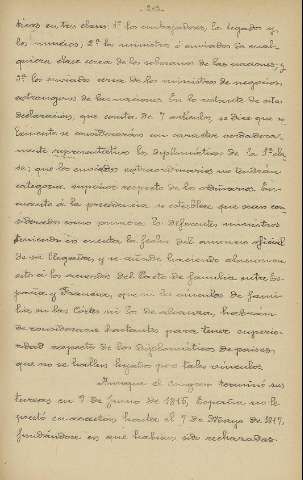 - 213 -
ticos en tres clases: 1ª los embajadores, los legados y
los nuncios; 2ª los ministros o enviados de cual-
quiera clase cerca de los soberanos de las naciones; y
3ª los enviados cerca de los ministros de negocios
extrangeros de las naciones. En la cabeza de esta
declaración, que consta de 7 artículos, se dice que so-
lamente se considerarán con carácter verdadera-
mente representativo los diplomáticos de la 1ª cla-
se; que los enviados extraordinarios no tendrán
categoría superior respecto de los ordinarios. En
cuanto a la precedencia se establece que sean con-
siderados como primeros los diferentes ministros
teniendo en cuenta la fecha del anuncio oficial
de su llegada, y se añade haciendo alusión
esto a los acuerdos del Pacto de familia entre Es-
paña y Francia, que ni los vínculos de fami-
lia en las Cortes ni los de alianza, habrán
de considerarse bastantes para tener superio-
ridad respecto de los diplomáticos de países
que no se hallen ligados por tales vínculos.
Aunque el congreso terminó sus
tareas en 9 de Junio de 1815, España no le
prestó su sanción hasta el 7 de Mayo de 1817,
fundándose en que habían sido rechazadas